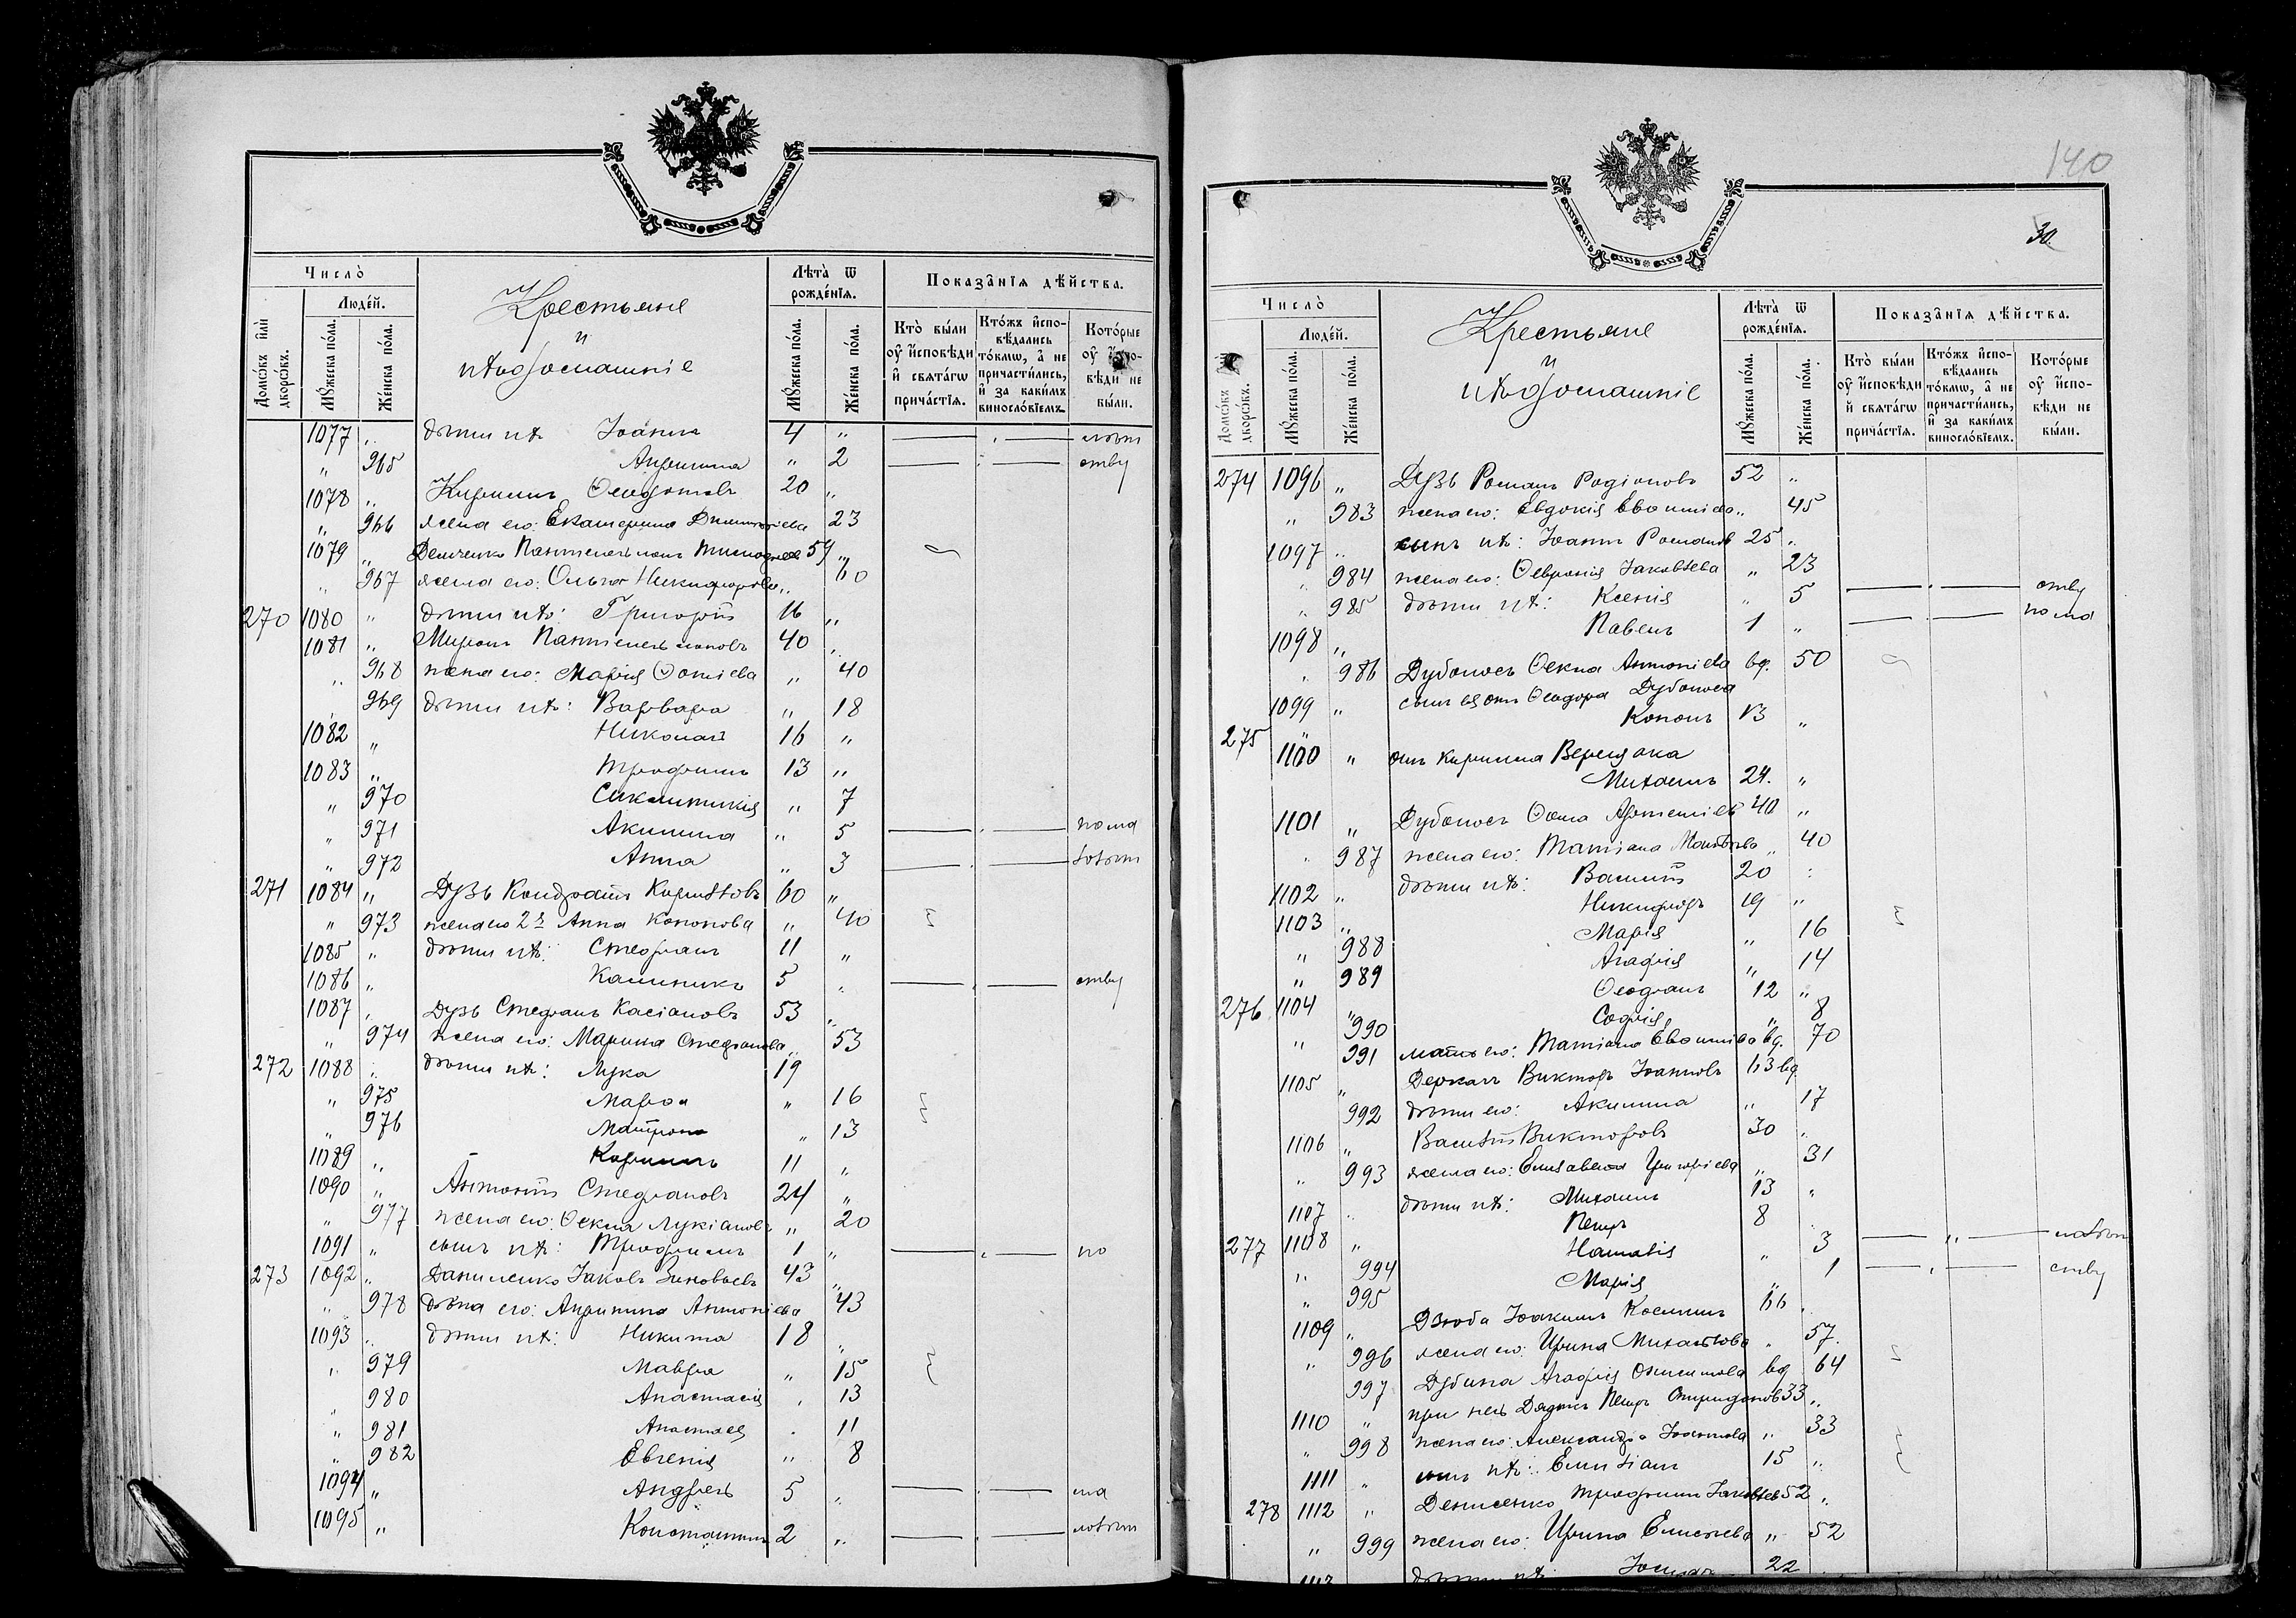 Число̀
Люде́й.
Домо́въ и҆лѝ дворо́въ.
Мꙋ́жеска по́ла.
Же́нска по́ла.
Крестьяне
и
ихъ домашніе
Лѣта̀ ѿ рожде́нїѧ.
Мꙋ́жеска по́ла.
Же́нска по́ла.
Показа̑нїѧ дѣ́йства.
Кто̀ бы́ли оу҆ и҆сповѣди и҆ свѧта́гѡ прича́стїѧ.
Кто́жъ и҆спо-вѣ́дались то́кмѡ, а҆ не причасти́лись, и҆ за каки́мъ винослов́їемъ.
Кото́рые оу҆ и҆спо-вѣди не бы́ли.
1077 „ дѣти ихъ Іоаннъ 4 „
„ 965 Агрипина „ 2 ству
1078 „ Кириллъ Ѳеодотовъ 20 „
„ 966 жена его: Екатерина Димитріева 23
1079 „ Демченко Пантелеимонъ 59 „
„ 967 жена его: Ольга Никифорова „ 60
270 1080 „ дѣти ихъ: Григорій 16 „
1081 „ Миронъ Пантелеимоновъ 40 „
„ 968 жена его: Марія Ѳомиева „ 40
„ 969 дѣти ихъ: Варвара „ 18
1082 „ Николай 16 „
1083 „ Трофимъ 13 „
„ 970 Синклитикія „ 7
„ 971 Акилина „ 5 по мал
„ 972 Анна „ 3
271 1084 „ Дузь Кондратъ Кирилловъ 60 „
„ 973 жена его 2я Анна Кононова „ 40
1085 „ дѣти ихъ: Стефанъ 11 „
1086 „ Каллиникъ 5 „ ству
1087 „ Дузь Стефанъ Касіановъ 53 „
„ 974 жена его: Марина Стефанова „ 53
272 1088 „ дѣти ихъ: Лука 19
„ 975 Марѳа „ 16
„ 976 Матрона „ 13
1089 „ Кириллъ 11 „
1090 „ Антоній Стефановъ 24 „
„ 977 жена его: Ѳекла Лукіанова „ 20
1091 „ сынъ ихъ: Трофимъ 1 „ по
273 1092 „ Даниленко Іаковъ Зиновьевъ 43 „
„ 978 жена его: Агрипина Антоніева 43
1093 „ дѣти ихъ: Никита 18 „
„ 979 Мавра „ 15
„ 980 Анастасія „ 13
„ 981 Анастасія „ 11
„ 982 Евгенія „ 8
1094 „ Андрей 5 „ ма
1095 „ Константинъ 2 „
140
30.
Число̀
Люде́й.
Домо́въ дворо́въ.
Мꙋ́жеска по́ла.
Же́нска по́ла.
Крестьяне
и
ихъ домашніе
Лѣта̀ ѿ рожде́нїѧ.
Мꙋ́жеска по́ла.
Же́нска по́ла.
Показа̑нїѧ дѣ́йства.
Кто̀ бы́ли оу҆ и҆сповѣди и҆ свѧта́гѡ прича́стїѧ.
Кто́жъ и҆спо-вѣ́дались то́кмѡ, а҆ не причасти́лись, и҆ за каки́мъ винослов́їемъ.
Кото́рые оу҆ и҆спо-вѣди не бы́ли.
274 1096 „ Дузь Романъ Родіоновъ 52 „
„ 983 жена его: Евдокія Евѳиміева „ 45
1097 „ сынъ ихъ: Іоаннъ Романовъ 25 „
„ 984 жена его: Ѳевронія Іаковлева „ 23
„ 985 дѣти ихъ: Ксенія „ 5 ству
1098 „ Павелъ 1 „ по мал
„ 986 Дубоносъ Ѳекла Антоніева вд. 50
1099 „ сынъ ея отъ Ѳеодора Дубоноса
Кононъ 13 „
275 1100 „ отъ Кирилла Верещака
Михаилъ 24. „
1101 „ Дубоносъ Ѳома Артеміевъ 40 „
„ 987 жена его: Татіана Матѳѣева „ 40
1102 „ дѣти ихъ: Василій 20 „
1103 „ Никифоръ 19 „
„ 988 Марія „ 16
„ 989 Агафія „ 14
276 1104 „ Ѳеофанъ 12 „
„ 990 Софія „ 8
„ 991 мать его: Татіана Евѳиміева вд. 70
1105 „ Деркачъ Викторъ Іоанновъ 63 вд
992 дѣти его: Акилина „ 17
1106 „ Василій Викторовъ 30 „
„ 993 жена его: Елисавета Григоріева „ 31
1107 „ дѣти ихъ: Михаилъ 13 „
277 1108 „ Петръ 8
„ 994 Наталія „ 3
„ 995 Марія „ 1 ству
1109 „ Дзюба Іоакимъ Косминъ 66 „
„ 996 жена его: Ирина Михайлова „ 57.
997 Дубина Агафія Онисимова вд 64
1110 „ при ней Дядикъ Петръ Спиридоновъ 33 „
„ 998 жена его: Александра Іоаннова „ 33
1111 „ сынъ ихъ: Емиліанъ 15 „
278 1112 „ Денисенко Трофимъ Іаковлевъ 52 „
„ 999 жена его: Ирина Елисеева „ 52
1113 дѣти ихъ 22